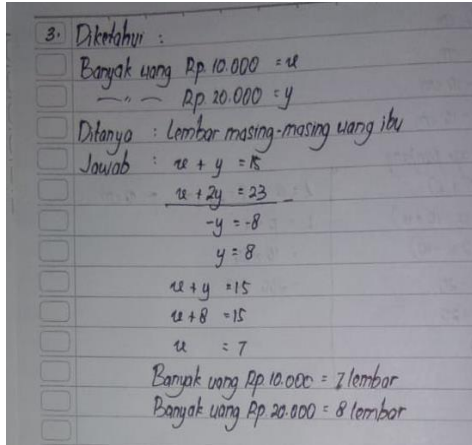 3. Diketahui :
Banyak uang Rp. 10.000 = x
—〃— Rp. 20.000 = y
Ditanya : Lembar masing-masing uang ibu
Jawab : x + y = 15
x + 2y = 23 -
-y = -8
y = 8
x + y = 15
x + 8 = 15
x = 7
Banyak uang Rp 10.000 = 7 lembar
Banyak uang Rp. 20.000 = 8 lembar